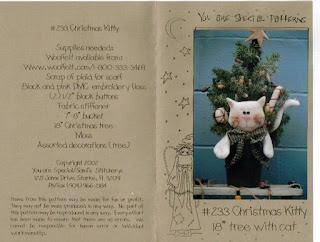 #233 Christmas Kitty
Supplies needed:
Woolfelt available from:
Www.woolfelt.com/1-800-333-3469
Scrap of plaid for scarf
Black and pink DMC embroidery floss
(2) 1/2" black buttons
Fabric stiffener
7"-8" bucket
18" Christmas tree
Moss
Assorted decorations (trees)
Copyright 2002
You are Special/Sandi's Stitcherys
Starke, FL 32091
Items from this pattern may be made for fun or profit.
They may not be mass produced in any way. No part of
this pattern may be reproduced in any way. Every effort has
been made to ensure that there are no errors. We
cannot be responsible for human error or individual
workmanship.
YOU ARE SPECIAL PATTERNS
#233 Christmas Kitty
18" tree with cat